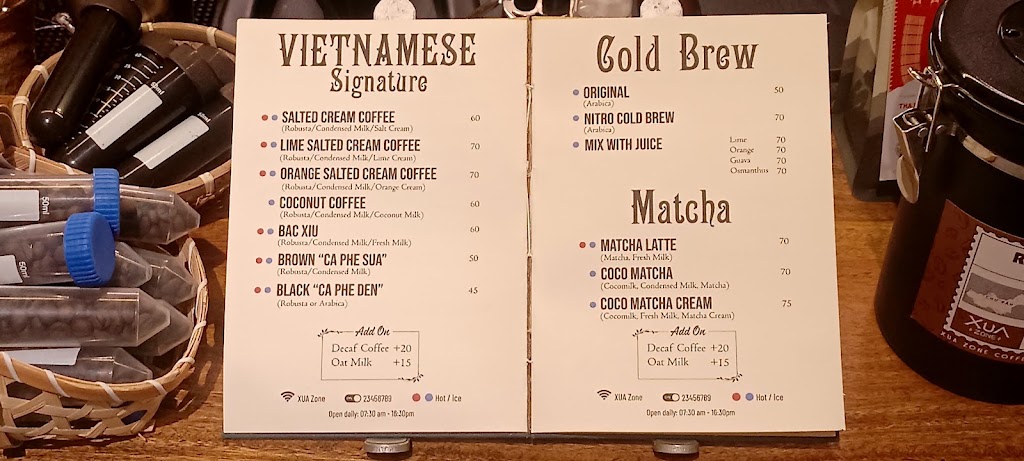 VIETNAMESE
Signature
SALTED CREAM COFFEE 60
(Robusta/Condensed Milk/Salt Cream)
LIME SALTED CREAM COFFEE 70
(Robusta/Condensed Milk/Lime Cream)
ORANGE SALTED CREAM COFFEE 70
(Robusta/Condensed Milk/Orange Cream)
COCONUT COFFEE 60
(Robusta/Condensed Milk/Coconut Milk)
BAC XIU 60
(Robusta/Condensed Milk/Fresh Milk)
BROWN “CA PHE SUA” 50
(Robusta/Condensed Milk)
BLACK “CA PHE DEN” 45
(Robusta or Arabica)
Add On
Decaf Coffee +20
Oat Milk +15
XUA Zone 23456789 Hot / Ice
Open daily: 07:30 am - 16:30pm
Cold Brew
ORIGINAL 50
(Arabica)
NITRO COLD BREW 70
(Arabica)
MIX WITH JUICE Lime 70
Orange 70
Guava 70
Osmanthus 70
Matcha
MATCHA LATTE 70
(Matcha, Fresh Milk)
COCO MATCHA 70
(Cocomilk, Condensed Milk, Matcha)
COCO MATCHA CREAM 75
(Cocomilk, Fresh Milk, Matcha Cream)
Add On
Decaf Coffee +20
Oat Milk +15
XUA Zone 23456789 Hot / Ice
Open daily: 07:30 am - 16:30pm
50ml
50ml
XUA
ZONE
XUA ZONE COFFEE